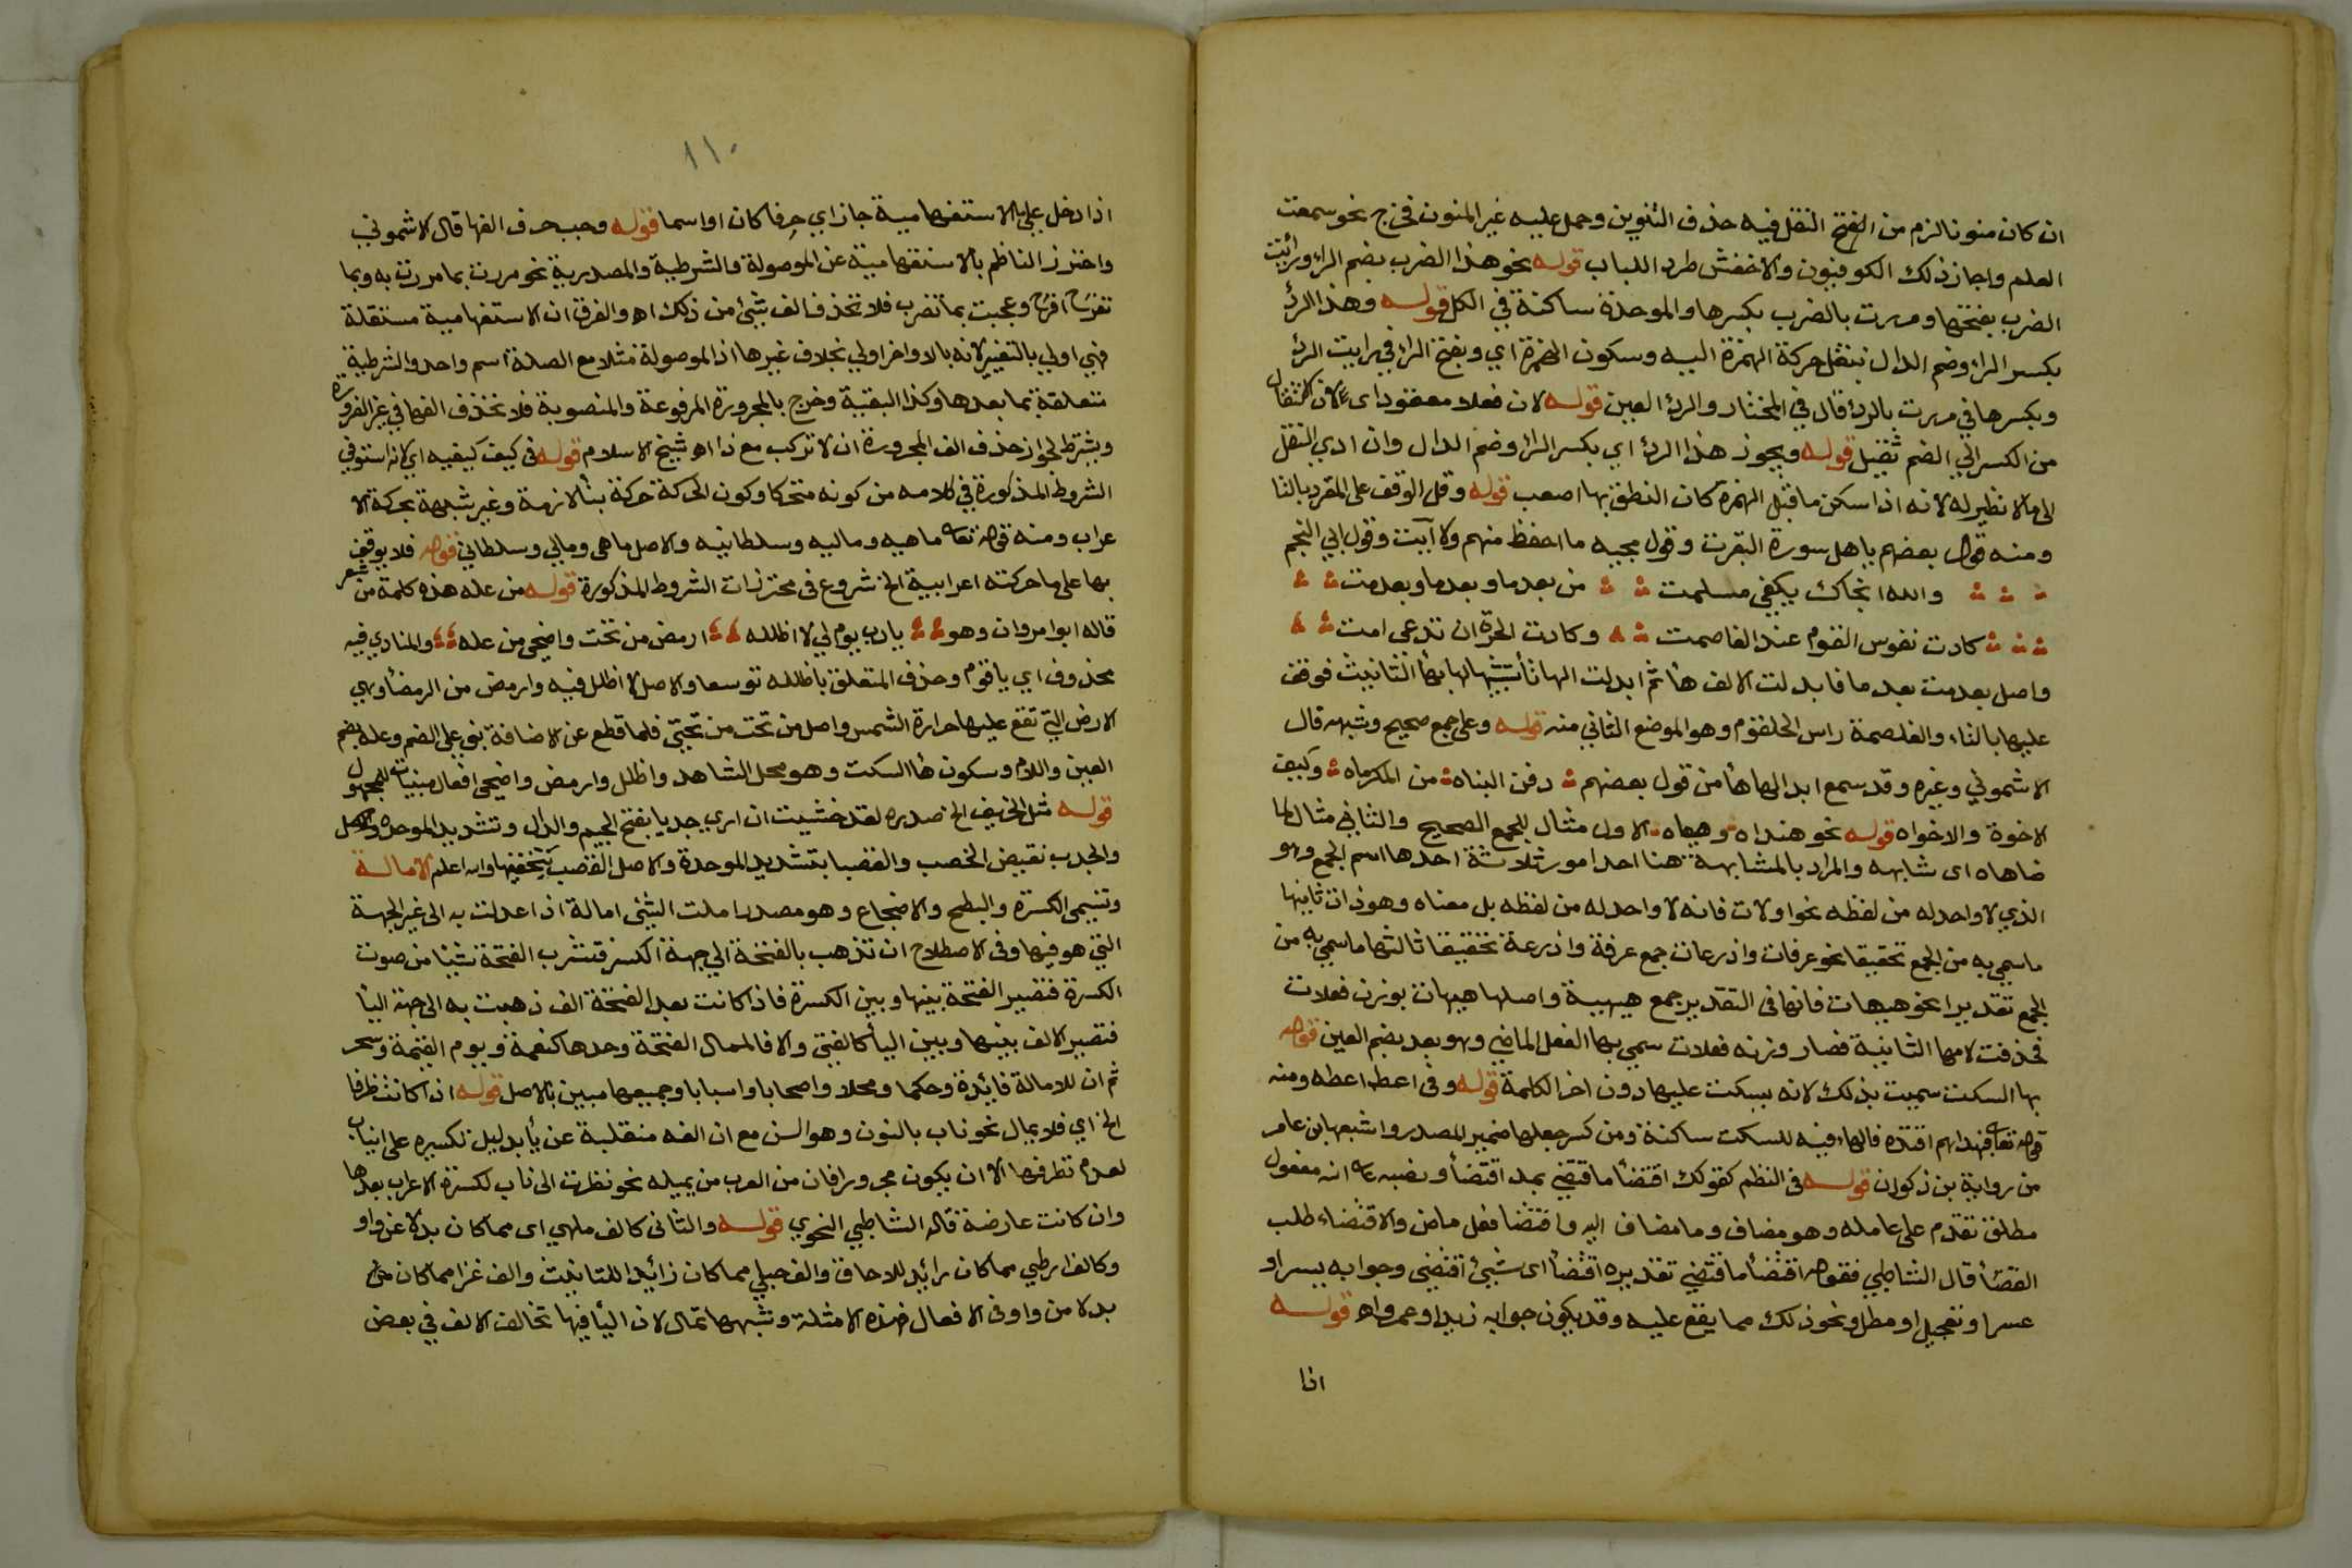 ان كان منونا لزم من الفتح النقل فيه حذف التنوين وحمل عليه غير المنون فخرج نحو سمعت
العلم واجاز ذلك الكوفيون والاخفش طرد اللباب قوله نحو هذا الضرب بضم الراء ورأيت
الضرب بفتحها ومررت بالضرب بكسرها والموحدة ساكنة في الكل قوله وهذا الردء
بكسر الراء وضم الدال بنقل حركة الهمزة اليه وسكون الهمزة اي وبفتح الراء في رايت الردء
وبكسرها في مررت بالردء قال في المختار والردء العين قوله لان فعلا مفقود اى لان الانتقال
من الكسر الي الضم ثقيل قوله ويجوز هذا الردء اي بكسر الراء وضم الدال وان ادي النقل
الى ما لا نظير له لانه اذا سكن ما قبل الهمزة كان النطق بها اصعب قوله وقل الوقف على المفرد بالتا
ومنه قول بعضهم يا هل سورة البقرت وقول مجيبه ما احفظ منهم ولا آيت وقول ابي النجم
والله انجاك بكفى مسلمت من بعد ما وبعد ما وبعدمت
كادت نفوس القوم عند الغاصمت وكادت الحرة ان تدعى امت
واصل بعدمت بعد ما فابدلت الالف هأ ثم ابدلت الها تأ تشبيها لها بهأ التانيث فوقف
عليها بالتاء والغلصمة راس الحلقوم وهو الموضع الثاني منه قوله وعلى جمع صحيح وشبهه قال
الاشموني وغيره وقد سمع ابدالها هأ من قول بعضهم دفن البناه من المكرماه وكيف
الاخوة والاخواه قوله نحو هنداه وهيهاه الاول مثال للجمع الصحيح والثاني مثال لما
ضاهاه اى شابهه والمراد بالمشابهة هنا احد امور ثلاثة احدها اسم الجمع وهو
الذي لا واحد له من لفظه نحو اولات فانه لا واحد له من لفظه بل معناه وهو ذات ثانيها
ما سمي به من الجمع تحقيقا نحو عرفات واذرعات جمع عرفة واذرعة تحقيقا ثالثها ما سمي به من
الجمع تقديرا نحو هيهات فانها في التقدير جمع هيهية واصلها هيهيات بوزن فعللات
فحذفت لامها الثانية فصار وزنه فعلات سمي بها الفعل الماضي وهو بعد بضم العين قوله
بها السكت سميت بذلك لانه يسكت عليها دون اخر الكلمة قوله وفى اعط اعطه ومنه
قوله تعالى فبهداهم اقتده فالهاء فيه للسكت ساكنة ومن كسر جعلها ضمير للمصدر واشبعها ابن عامر
من رواية بن ذكوان قوله فى النظم كقولك اقتضأ ما اقتضى بمد اقتضأ ونصبه على انه مفعول
مطلق تقدم على عامله وهو مضاف وما مضاف اليه واقتضا فعل ماض والاقتضاء طلب
القضأ قال الشاطبي فقوله اقتضأ ما اقتضى تقديره اقتضأ اى شيئ اقتضى وجوابه بيسر او
عسر او تعجيل او مطل ونحو ذلك مما يقع عليه وقد يكون جوابه زيد او عمرو اه قوله
اذا
١١٠
اذا دخل على ما الاستفهامية جاز اي حرفا كان او اسما قوله وجب حذف الفها قال الاشموني
واحترز الناظم بالاستفهامية عن الموصولة والشرطية والمصدرية نحو مررت بما مررت به وبما
تفرح افرح وعجبت بما تضرب فلا تحذف الف شيئ من ذلك اه والفرق ان الاستفهامية مستقلة
فهي اولي بالتغيير لانه بالاواخر اولي بخلاف غيرها اذ الموصولة مثلا مع الصلة اسم واحد والشرطية
متعلقة بما بعدها وكذا البقية وخرج بالمجرورة المرفوعة والمنصوبة فلا تحذف الفها في غير الضرورة
ويشترط لجواز حذف الف المجرورة ان لا تركب مع ذا اه شيخ الاسلام قوله في كيف كيفيه اي لانه استوفي
الشروط المذكورة في كلامه من كونه متحركا وكون الحركة حركة بنأ لازمة وغير شبيهة بحركة الا
عراب ومنه قوله تعالى ماهيه وماليه وسلطانيه والاصل ماهى ومالي وسلطاني قوله فلا يوقف
بها على ما حركته اعرابية الخ شروع فى محترزات الشروط المذكورة قوله من عله هذه كلمة من شعر
قاله ابو امروان وهو يا رب يوم لي لا اظلله ارمض من تحت واضحى من عله والمنادي فيه
محذوف اي يا قوم وحذف المتعلق باظلله توسعا والاصل لا اظلل فيه وارمض من الرمضأ وهي
الارض التي تقع عليها حرارة الشمس واصل من تحت من تحتي فلما قطع عن الاضافة بني على الضم وعله بضم
العين واللام وسكون هأ السكت وهو محل الشاهد واظلل وارمض واضحى افعال مبنيات للمجهول
قوله مثل الحريف الخ صدره لقد خشيت ان اري جدبا بفتح الجيم والدال وتشديد الموحدة والاصل
والجدب نقيض الخصب والقصبا بتشديد الموحدة والاصل القصب بتخفيفها والله اعلم الامالة
وتسمى الكسرة والبطح والاضجاع وهو مصدر املت الشيئ امالة اذا عدلت به الى غير الجهة
التي هو فيها وفى الاصطلاح ان تذهب بالفتحة الي جهة الكسر فتشرب الفتحة شيئا من صوت
الكسرة فتصير الفتحة بينها وبين الكسرة فاذا كانت بعد الفتحة الف ذهبت به الى جهة اليأ
فتصير الالف بينها وبين اليأ كالفتى والا فالممال الفتحة وحدها كنعمة وبيوم القيمة وسحر
ثم ان للامالة فائدة وحكما ومحلا واصحابا واسبابا وجميعها مبين بالاصل قوله اذا كانت ظرفا
الخ اي فلا يمال نحو ناب بالنون وهو السن مع ان الفه منقلبة عن يأ بدليل تكسيره على انياب
لعدم تطرفها الا ان يكون مجرورا فان من العرب من يميله نحو نظرت الى ناب لكسرة الاعراب بعدها
وان كانت عارضة قاله الشاطبي النحوي قوله والثانى كالف ملهي اى مما كان بدلا عن واو
وكالف ارطي مما كان زائد للالحاق والف حبلي مما كان زائدا للتانيث والف غزا مما كان
بدلا من واو فى الافعال فهذه الامثلة وشبهها تمال لان اليأ فيها تخالف الالف في بعض